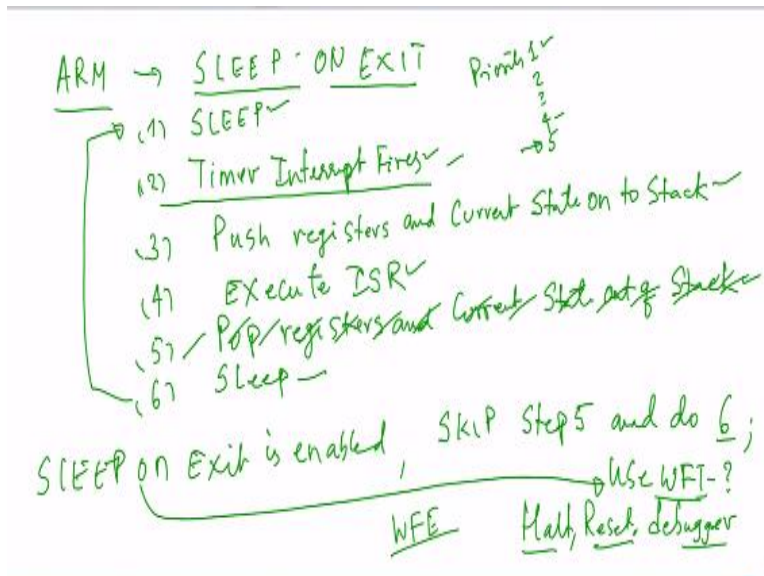 ARM → SLEEP-ON EXIT
Priority 1✓
2
3
4✓
→5
(1) SLEEP✓
(2) Timer Interrupt Fires✓
(3) Push registers and Current State on to Stack
(4) EXecute ISR✓
(5) Pop registers and Current State out of Stack
(6) Sleep
SLEEP on Exit is enabled, SKIP Step5 and do 6;
Use WFI-?
WFE Halt, Reset, debugger